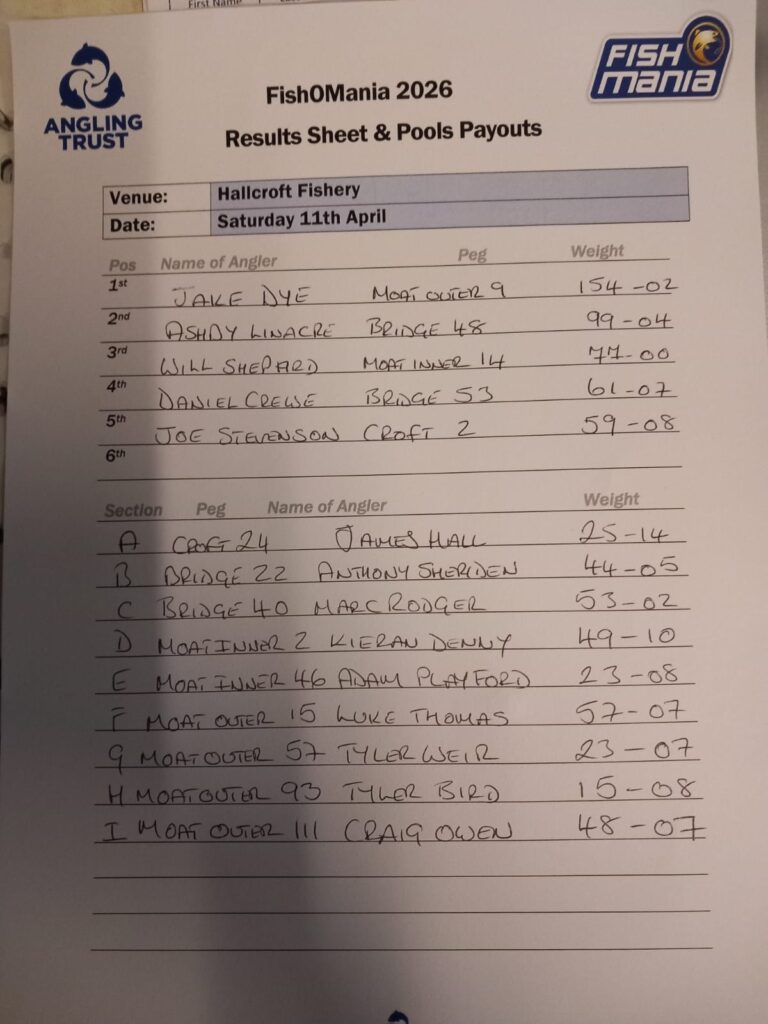 First Name
ANGLING
TRUST
FISH
MANIA
FishOMania 2026
Results Sheet & Pools Payouts
Venue: Hallcroft Fishery
Date: Saturday 11th April
Pos Name of Angler Peg Weight
1st JAKE DYE MOAT OUTER 9 154-02
2nd ASHDY LINACRE BRIDGE 48 99-04
3rd WILL SHEPARD MOAT INNER 14 77-00
4th DANIEL CREWE BRIDGE 53 61-07
5th JOE STEVENSON CROFT 2 59-08
6th
Section Peg Name of Angler Weight
A CROFT 24 JAMES HALL 25-14
B BRIDGE 22 ANTHONY SHERIDEN 44-05
C BRIDGE 40 MARC RODGER 53-02
D MOAT INNER 2 KIERAN DENNY 49-10
E MOAT INNER 46 ADAM PLAYFORD 23-08
F MOAT OUTER 15 LUKE THOMAS 57-07
G MOAT OUTER 57 TYLER WEIR 23-07
H MOAT OUTER 93 TYLER BIRD 15-08
I MOAT OUTER 111 CRAIG OWEN 48-07